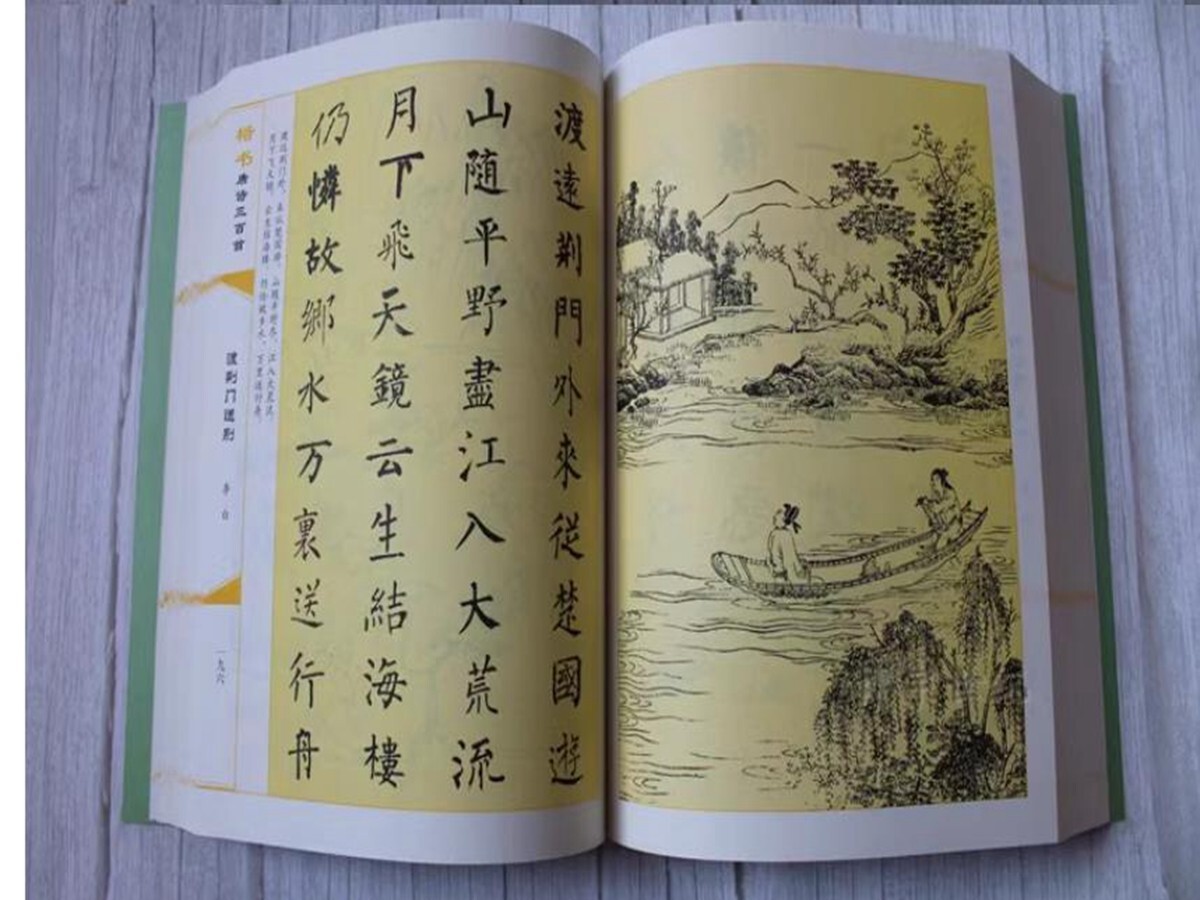 渡遠荆門外來從楚國遊
山随平野盡江入大荒流
月下飛天鏡云生結海樓
仍憐故鄉水万裏送行舟
渡远荆门外，来从楚国游。山随平野尽，江入大荒流。
月下飞天镜，云生结海楼。仍怜故乡水，万里送行舟。
楷书唐诗三百首
渡荆门送别
李白
一九六